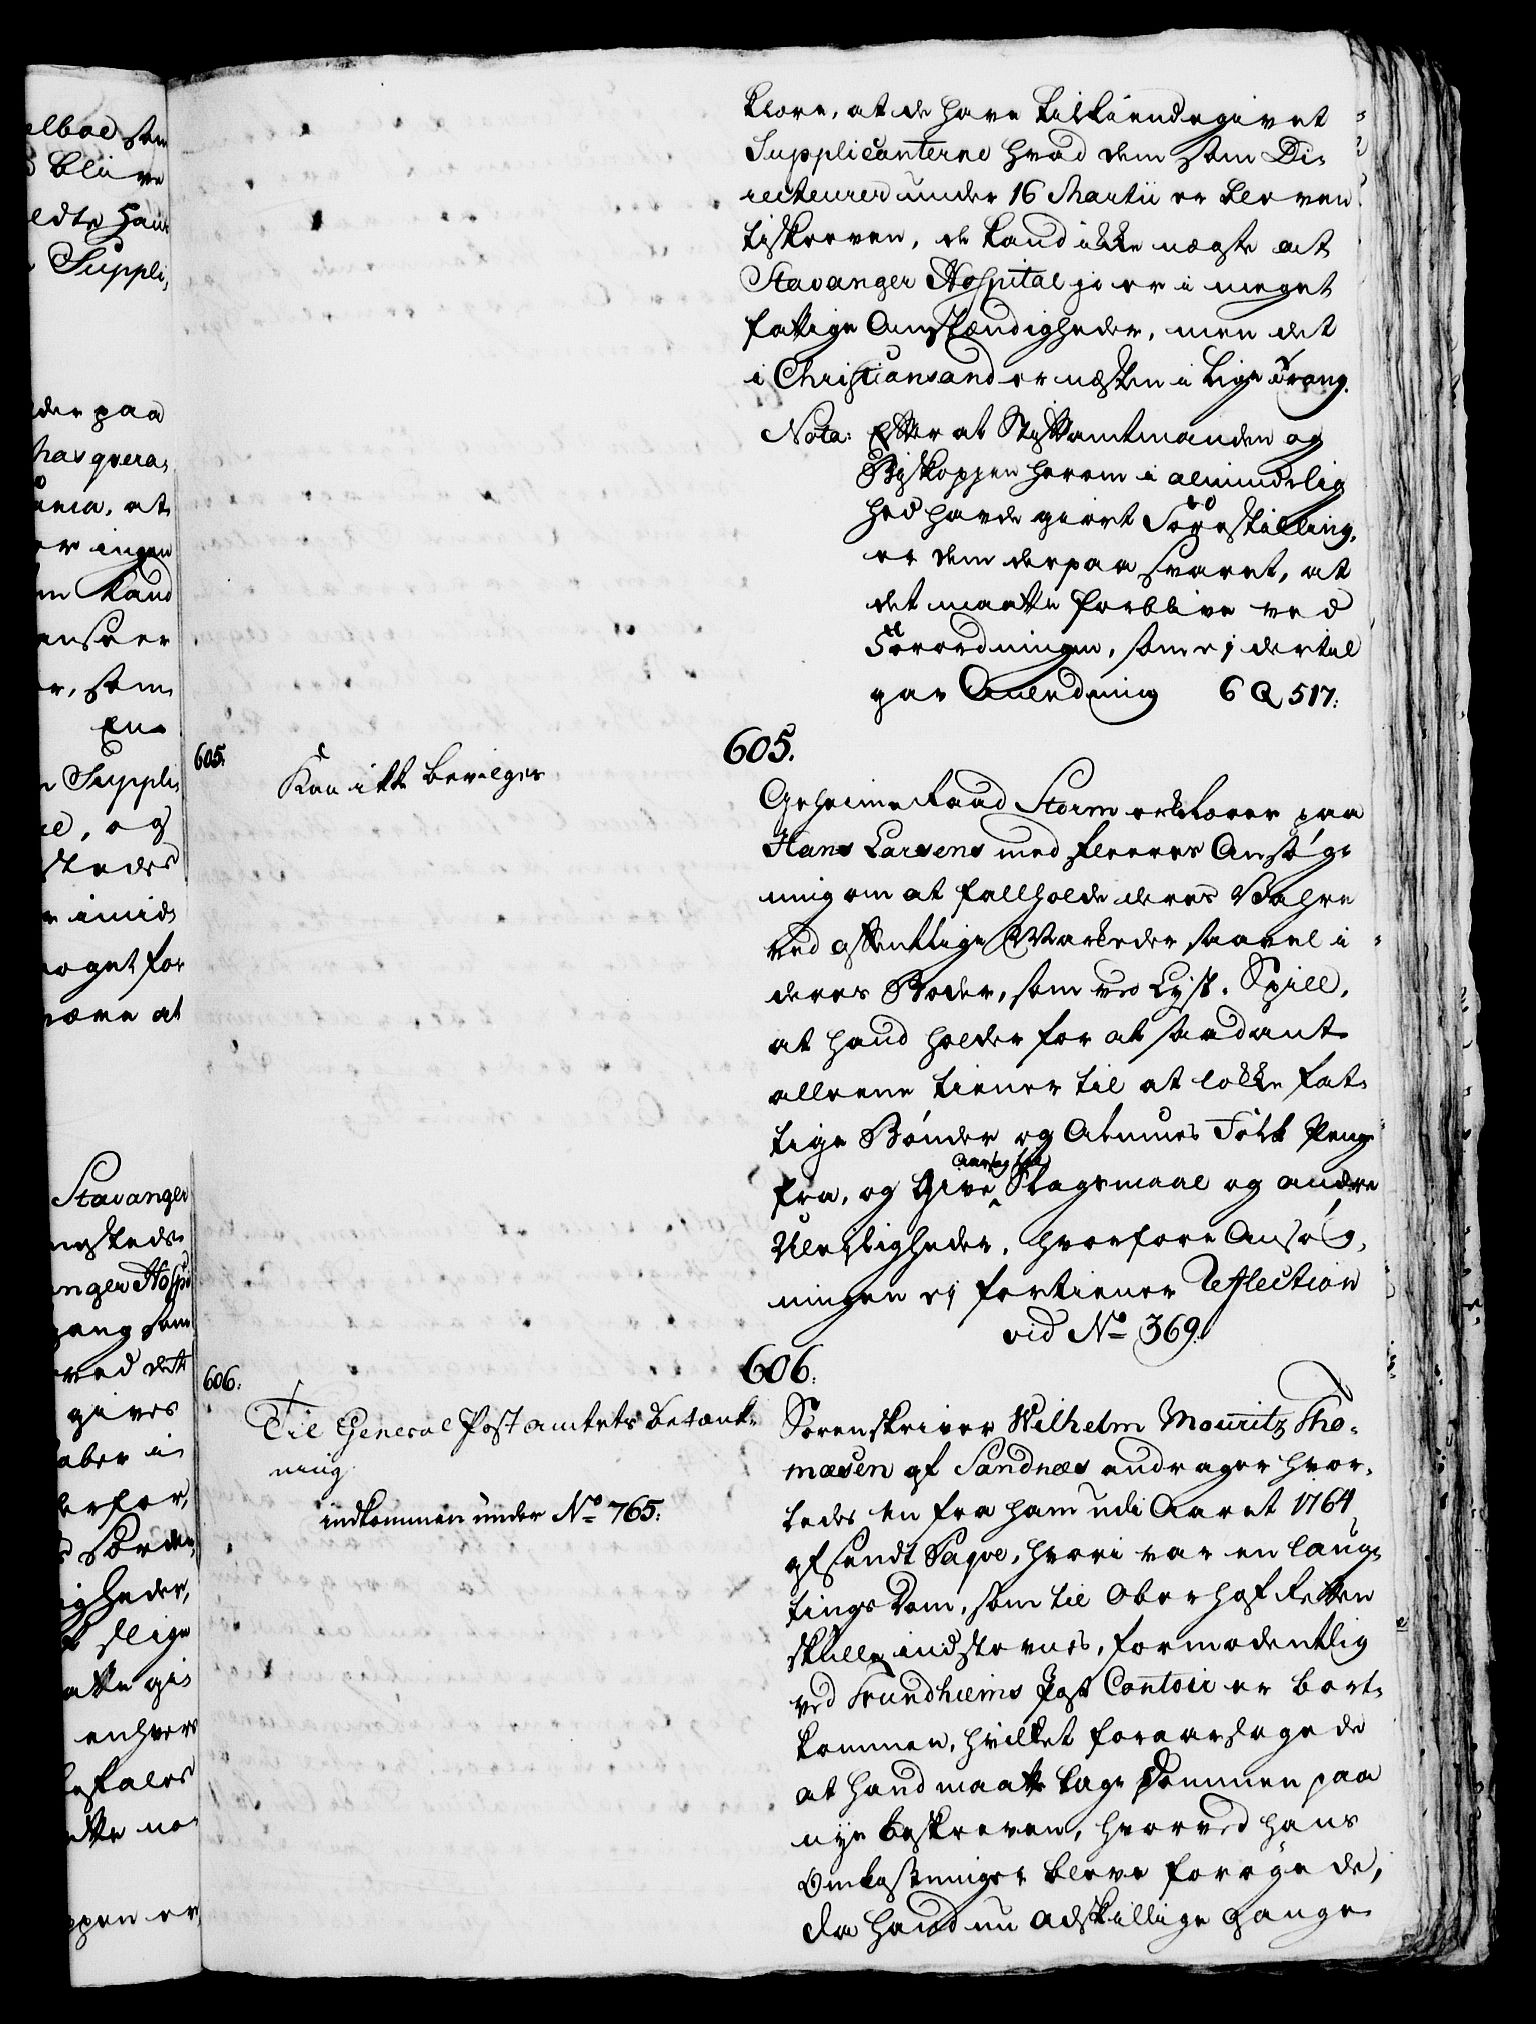 klare, at de have tilkiendegivet
Supplicanterne hvad dem som Di-
recteurer under 16 Martii er bleven
tilskreven, de kand ikke nægte at
Stavanger Hospital jo er i meget
fattige Omstændigheder, men det
i Christiansand er næsten i lige Trang.
Nota: Efter at Stiftamtmanden og
Biskoppen herom i almindelig
hed havde giort Forestilling,
er dem derpaa svaret, at
det maatte forblive ved
Forordningen, som ej dertil
gav Anledning 6 Q 517:
605.
605.
Kan ikke bevilges
Geheime Raad Storm erklærer paa
Hans Larsens med fleeres Ansøg-
ning om at falholde deres Wahre
ved offentlige Markeder saavel i
deres Boder, som ved Lyst-Spill,
at hand holder for at saadant
alleene tiener til at lokke fat-
tige Bønder og Almues Folk Penge
fra, og give Aarsag til Klagemaal og andre
Uleiligheder, hvorfore Ansøg-
ningen ej fortiener Reflection
vid No 369.
606.
606.
Til General Postamtets Betænk-
ning.
indkommen under No 765:
Sorenskriver Wilhelm Mouritz Tho-
mæsen af Sandnæs andrager hvor-
ledes en fra ham udi Aaret 1764
afsendt Paqve, hvori var en Laug-
tings Dom, som til Oberhof Retten
skulle indstevnes, formodentlig
ved Trundhiems Post Contoir er bort-
kommen, hvilket foraarsagede
at hand maatte tage Dommen paa
nye beskreven, hvorved hans
Omkostninger bleve forøgede,
da hand nu adskillige gange